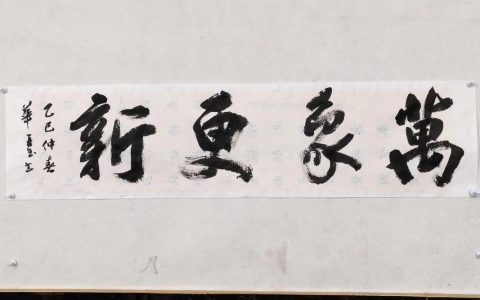 萬象更新
乙巳仲春